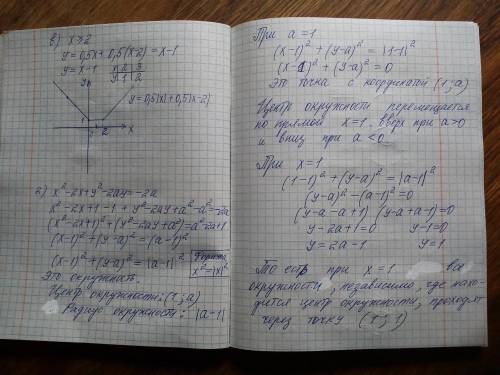 в) x ≥ 2
y = 0,5x + 0,5(x-2) = x-1
y = x-1 x 2 3
y 1 2
y
y = 0,5|x| + 0,5|x-2|
1
1 2 x
2) x² - 2x + y² - 2ay = -2a
x² - 2x + 1 - 1 + y² - 2ay + a² - a² = -2a
(x² - 2x + 1) + (y² - 2ay + a²) = a² - 2a + 1
(x-1)² + (y-a)² = (a-1)²
(x-1)² + (y-a)² = |a-1|² Формула
x² = |x|²
Это окружность.
Центр окружности: (1; a)
Радиус окружности: |a-1|
При a = 1
(x-1)² + (y-a)² = |1-1|²
(x-1)² + (y-a)² = 0
Это точка с координатой (1; a)
Центр окружности перемещается
по прямой x = 1. вверх при a>0
и вниз при a<0
При x = 1
(1-1)² + (y-a)² = |a-1|²
(y-a)² - (a-1)² = 0
(y-a-a+1) (y-a+a-1) = 0
y - 2a + 1 = 0 y-1 = 0
y = 2a-1 y = 1
То есть при x = 1 все
окружности, независимо, где нахо-
дится центр окружности, проходят
через точку (1; 1)